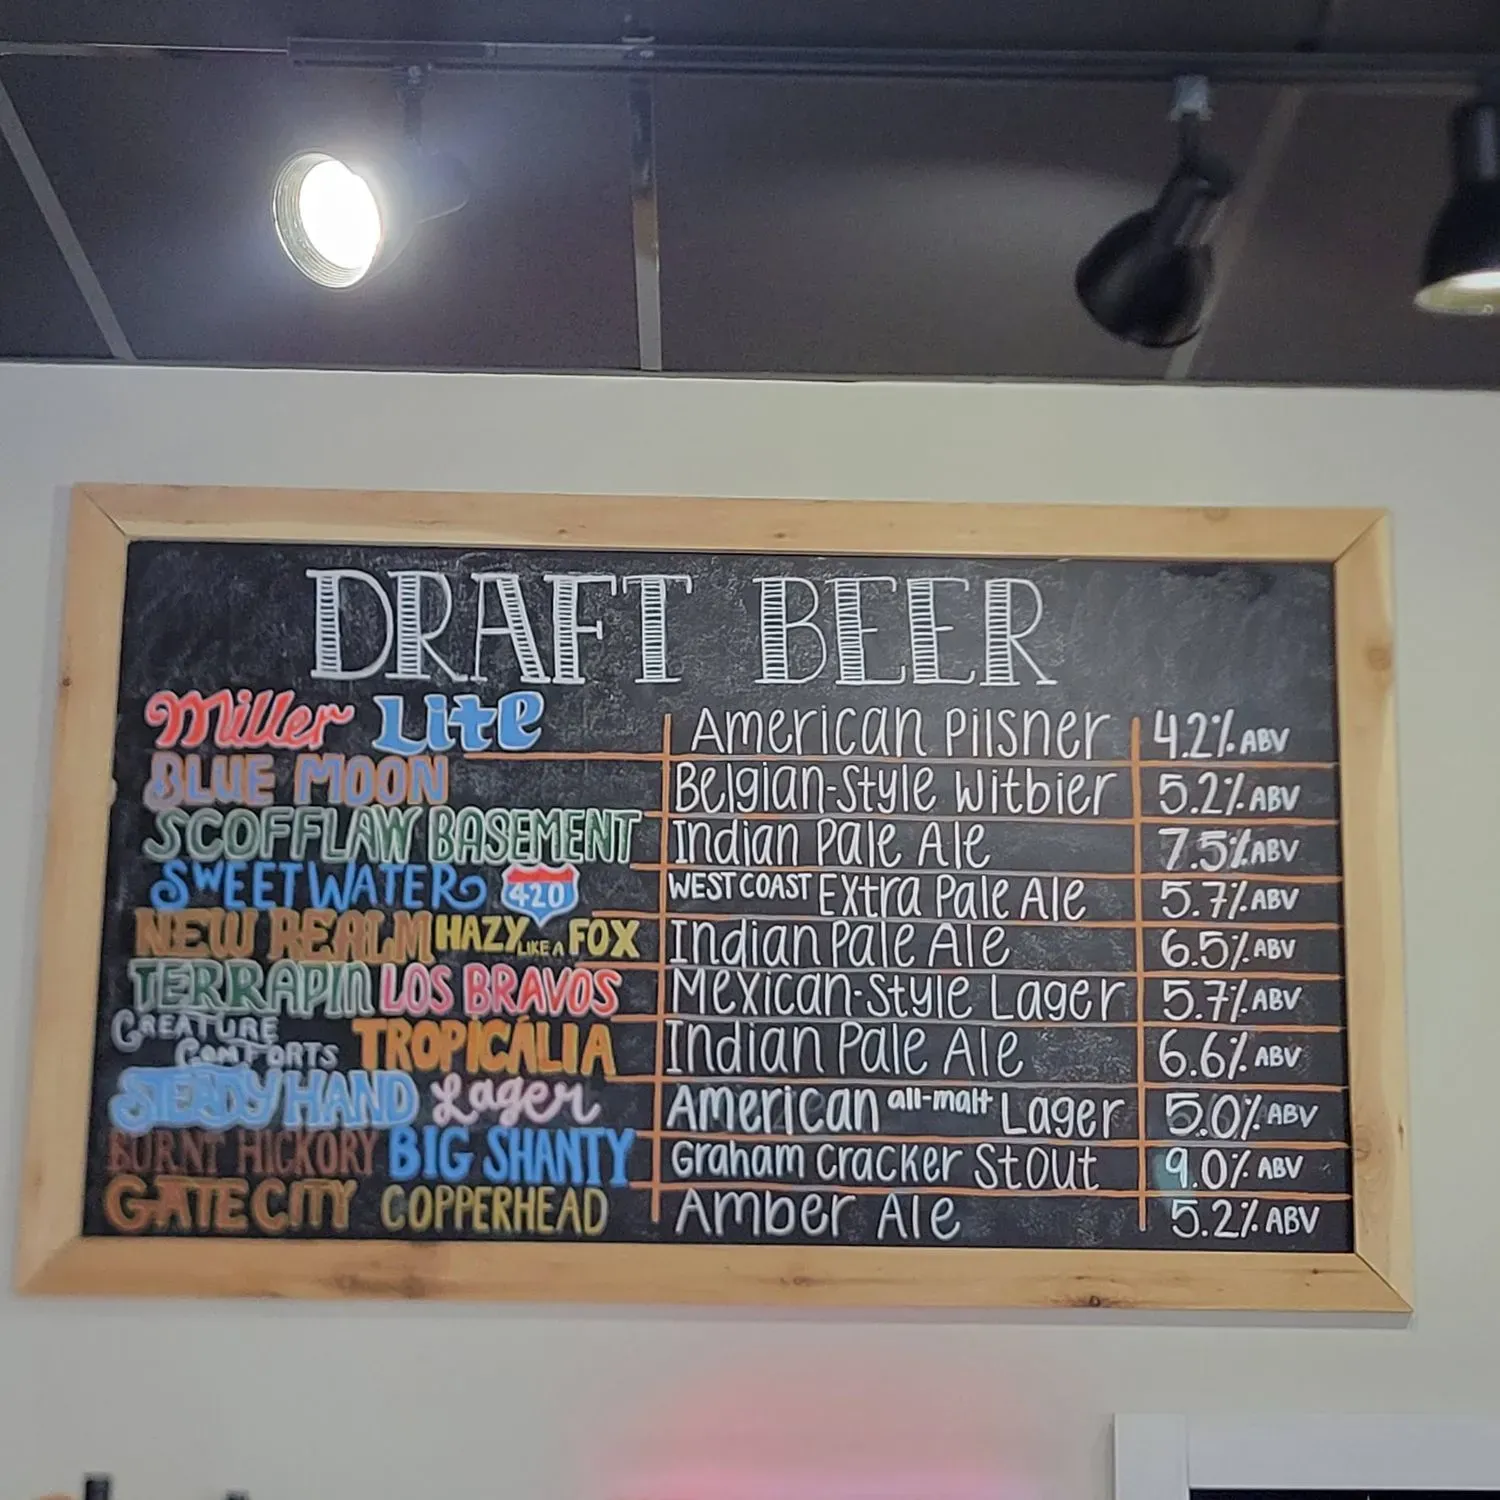 DRAFT BEER
Miller Lite American Pilsner 4.2% ABV
BLUE MOON Belgian-Style Witbier 5.2% ABV
SCOFFLAW BASEMENT Indian Pale Ale 7.5% ABV
SWEETWATER 420 WEST COAST Extra Pale Ale 5.7% ABV
NEW REALM HAZY LIKE A FOX Indian Pale Ale 6.5% ABV
TERRAPIN LOS BRAVOS Mexican-Style Lager 5.7% ABV
CREATURE COMFORTS TROPICÁLIA Indian Pale Ale 6.6% ABV
STEADY HAND Lager American all-malt Lager 5.0% ABV
BURNT HICKORY BIG SHANTY Graham Cracker Stout 9.0% ABV
GATE CITY COPPERHEAD Amber Ale 5.2% ABV